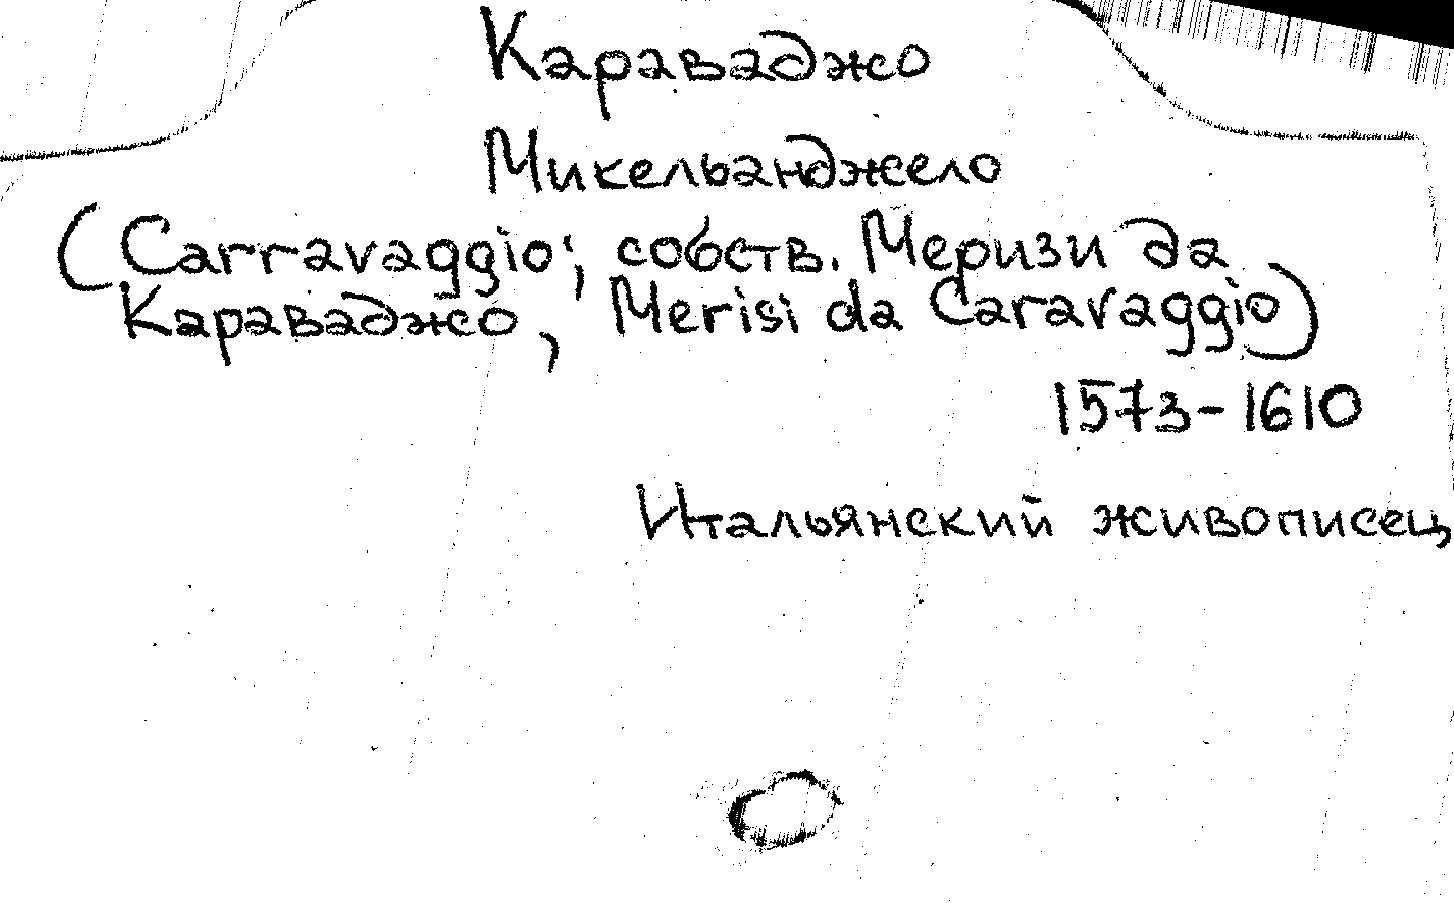 Караваджо
Микельанджело
(Carravaggio; собств. Меризи да
Караваджо, Merisi da Caravaggio)
1573-1610
Итальянский живописец